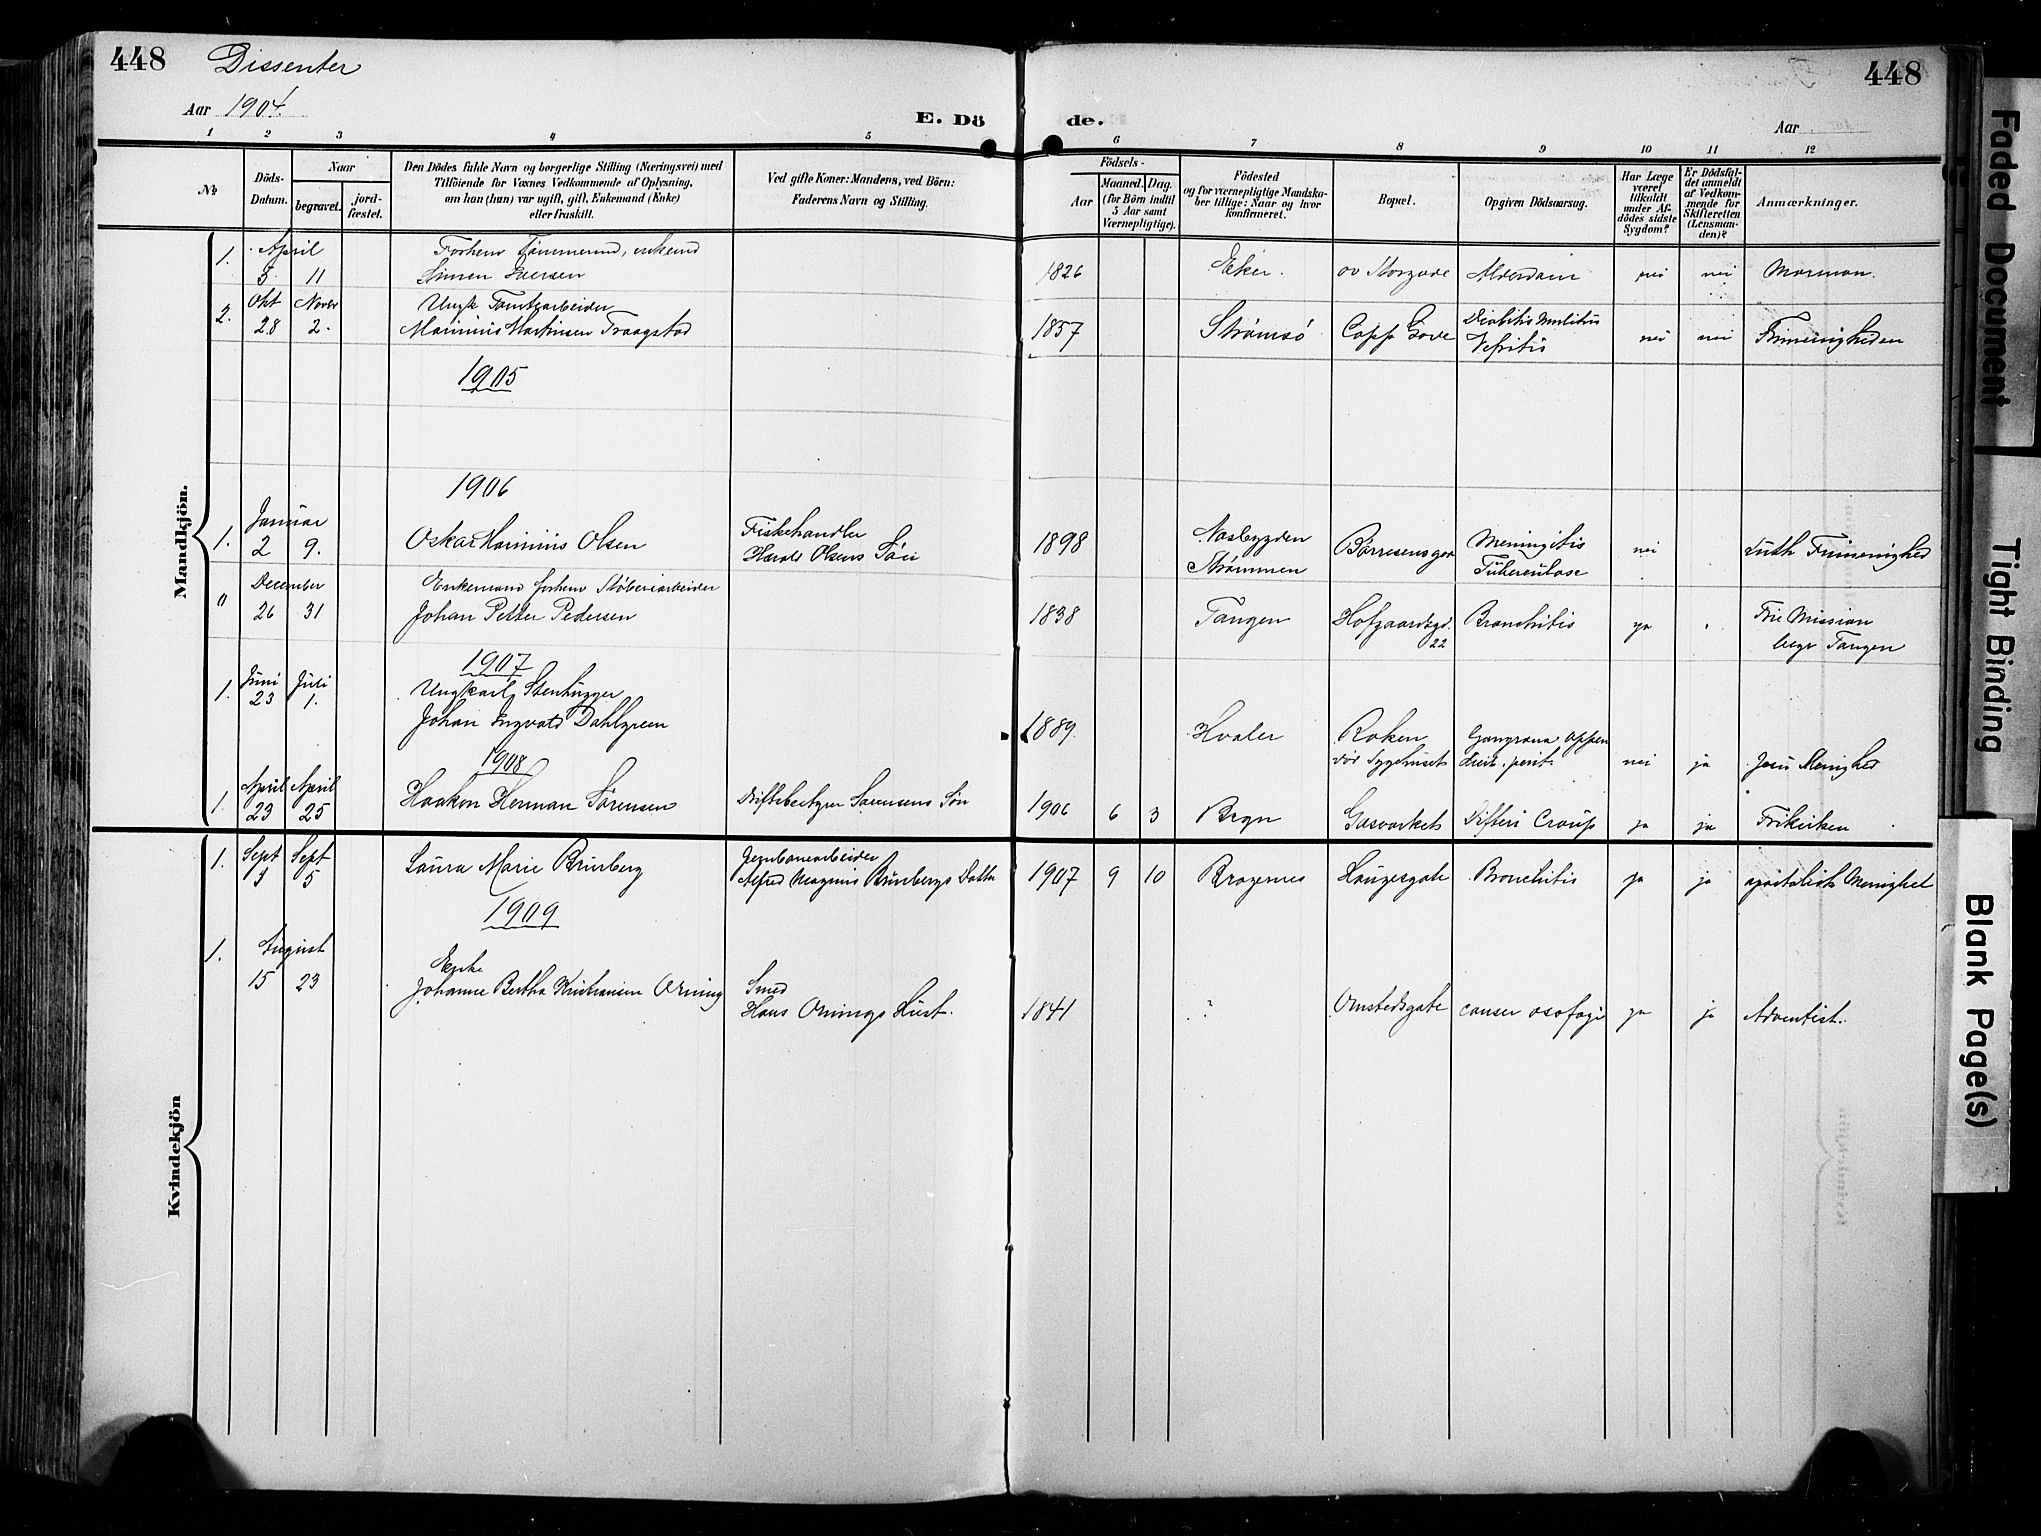 448 Dissenter 448
Aar 1904. E. Dö de. Aar
1 2 3 4 5 6 7 8 9 10 11 12
No Döds-Datum. Naar begravet. jord-fæstet. Den Dödes fulde Navn og borgerlige Stilling (Næringsvei) med Tilföiende for Voxnes Vedkommende af Oplysning, om han (hun) var ugift, gift, Enkemand (Enke) eller fraskilt. Ved gifte Koner: Mandens, ved Börn: Faderens Navn og Stilling. Födsels- Aar Maaned. Dag. (for Börn indtil 5 Aar samt Værnepligtige). Födested og for værnepligtige Mandska-ber tillige: Naar og hvor konfirmeret. Bopæl. Opgiven Dödsaarsag. Har Læge været tilkaldt under Af-dödes sidste Sygdom? Er Dödsfal-det anmeldt af Vedkom-mende for Skifteretten (Lensman-den)? Anmærkninger.
Mandkjön.
1. April
5 11 Simen Iversen 1826 Eker. öv Storgade Alderdom nei nei Mormon.
2. Okt Novbr Ungk Tomtearbeider
28 2. Marinius Martinsen Fraagstad 1857 Strømsö Capp Gove Diabitis Mellitus Nefritis nei nei Frimenigheden
1905
1906
1. Januar
2 9. Oskar Marinius Olsen Fiskehandler Harald Olsens Sön 1898 Næsbygden Strømmen Börresensgd Meningitis Tuberculose nei Luth Frimenighed
December Enkemand forhenv Støberiarbeider
26 31 Johan Petter Pedersen 1838 Tangen Hofgaardsgd. 22 Bronchitis ja Frie Mission begr Tangen
1907
1. Juni Juli Ungkarl Stenhugger
23 1. Johan Ingvald Dahlgreen 1889. Hvaler Røken död Sygehuset Gangræna Appen nei ja Jesu Menighed
1908
1. April April
23 25 Haakon Herman Sörensen Driftsbestyrer Sørensens Sön 1906 6 3 Bragn Gasværkets Difteri Croup ja ja Frikirken
Kvindekjön
1. Sept Sept
1 5 Laura Marie Brunberg Jernbanearbeider Alfred Magnus Brunbergs Datter 1907 9 10 Bragernes Haugesgate Bronchitis ja ja apostolisk Menighet
1909
1. August
15 23 Johanne Bertha Kristiansen Orning Smed Hans Ornings Hust. 1841 ? Ornstedsgate cancer osofagi ja ja Adventist.
Faded Document
Tight Binding
Blank Page(s)